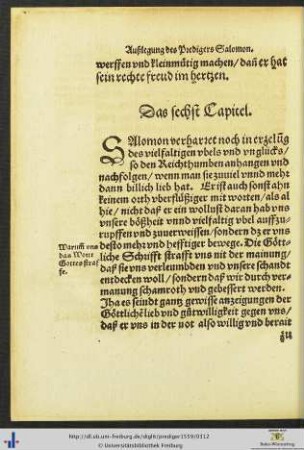 Außlegung des Predigers Salomon.
werffen vnd kleinmůtig machen / dañ er hat
sein rechte freud im hertzen.
Das sechst Capitel.
SAlomon verharret noch in erzelũg
des vielfaltigen vbels vnd vnglücks /
so den Reichthumben anhangen vnd
nachfolgen / wenn man sie zuuiel vnnd mehr
dann billich lieb hat. Er ist auch sonst ahn
keinem orth vberflüßiger mit worten / als al
hie / nicht daß er ein wollust daran hab vns
vnsere bößheit vnnd vielfaltig vbel auffzu-
rupffen vnd zuuerweissen / sondern dz er vns
desto mehr vnd hefftiger bewege. Die Gött-
liche Schrifft strafft vns nit der mainung /
daß sie vns verleumbden vnd vnsere schandt
entdecken woll / sondern daß wir durch ver-
manung schamroth vnd gebessert werden.
Jha es seindt gantz gewisse anzeigungen der
Göttlichẽ lieb vnd gütwilligkeit gegen vns /
daß er vns in der not also willig vnd berait
zu
Warumb vns
das Wort
Gottes straf
fe.
http://dl.ub.uni-freiburg.de/diglit/prediger1559/0312
© Universitätsbibliothek Freiburg